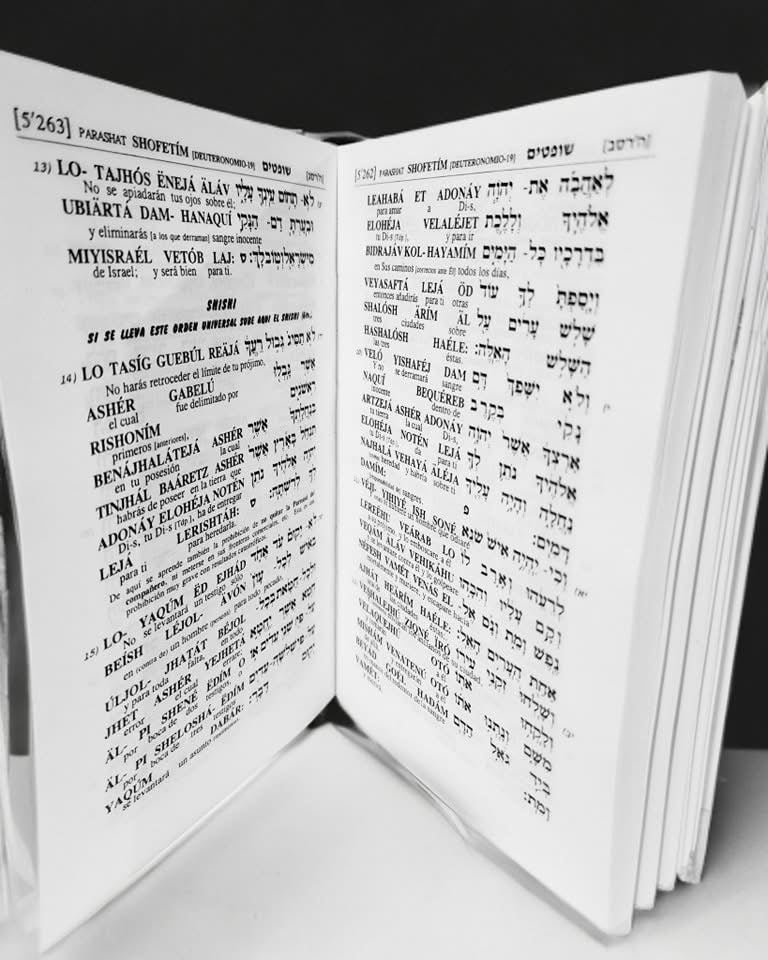 [5'262] PARASHAT SHOFETÍM [DEUTERONOMIO-19] שופטים [ה'רסב]
LEAHABÁ ET ADONÁY לְאַהֲבָה אֶת- יְהוָה
para amar a Di-s,
ELOHÉJA VELALÉJET אֱלֹהֶיךָ וְלָלֶכֶת
tu Di-s [Tóp.], y para ir
BIDRAJÁV KOL- HAYAMÍM בִּדְרָכָיו כָּל- הַיָּמִים
en Sus caminos [correctos ante Él] todos los días,
VEYASAFTÁ LEJÁ ÖD וְיָסַפְתָּ לְךָ עוֹד
entonces añadirás para ti otras
SHALÓSH ÄRÍM ÄL שָׁלֹשׁ עָרִים עַל
tres ciudades sobre
HASHALÓSH HAÉLE: הַשָּׁלֹשׁ הָאֵלֶּה:
las tres éstas.
VELÓ YISHAFÉJ DAM וְלֹא יִשָּׁפֵךְ דָּם
Y no se derramará sangre
NAQUÍ BEQUÉREB נָקִי בְּקֶרֶב
inocente dentro de
ARTZEJÁ ASHÉR ADONÁY אַרְצְךָ אֲשֶׁר יְהוָה
tu tierra la cual Di-s,
ELOHÉJA NOTÉN LEJÁ אֱלֹהֶיךָ נֹתֵן לְךָ
tu Di-s [Tóp.] da para ti
NAJHALÁ VEHAYÁ ÄLÉJA נַחֲלָה וְהָיָה עָלֶיךָ
como heredad y habría sobre ti
DAMÍM: דָּמִים: פ
VEJI- YIHIYÉ ISH SONÉ וְכִי- יִהְיֶה אִישׁ שֹׂנֵא
LEREËHÚ VEÁRAB LO לְרֵעֵהוּ וְאָרַב לוֹ
VEQÁM ÄLÁV VEHIKÁHU וְקָם עָלָיו וְהִכָּהוּ
NÉFESH VAMÉT VENÁS EL נֶפֶשׁ וָמֵת וְנָס אֶל
AJHÁT HEARÍM HAÉLE: אַחַת הֶעָרִים הָאֵל:
ZIQNÉ ÏRÓ וְשָׁלְחוּ זִקְנֵי עִירוֹ
VELAQUEJHÚ OTÓ וְלָקְחוּ אֹתוֹ
MISHÁM VENATENÚ OTÓ מִשָּׁם וְנָתְנוּ אֹתוֹ
BEYÁD GOÉL HADÁM בְּיַד גֹּאֵל הַדָּם
VAMÉT: וָמֵת:
[5'263] PARASHAT SHOFETÍM [DEUTERONOMIO-19] שופטים
13) LO- TAJHÓS ËNEJÁ ÄLÁV לֹא- תָחוֹס עֵינְךָ עָלָיו
No se apiadarán tus ojos sobre él;
UBIÄRTÁ DAM- HANAQUÍ וּבִעַרְתָּ דַם- הַנָּקִי
y eliminarás [a los que derramas] sangre inocente
MIYISRAÉL VETÓB LAJ: מִיִּשְׂרָאֵל וְטוֹב לָךְ: ס
de Israel; y será bien para ti.
SHISHI
SI SE LLEVA ESTE ORDEN UNIVERSAL SUBE AQUI EL SHISHI
14) LO TASÍG GUEBÚL REÄJÁ לֹא תַסִּיג גְּבוּל רֵעֲךָ
No harás retroceder el límite de tu prójimo,
ASHÉR GABELÚ אֲשֶׁר גָּבְלוּ
el cual fue delimitado por
RISHONÍM רִאשֹׁנִים
primeros [anteriores],
BENÁJHALÁTEJÁ ASHÉR בְּנַחֲלָתְךָ אֲשֶׁר
en tu posesión la cual
TINJHÁL BAÁRETZ ASHÉR תִּנְחַל בָּאָרֶץ אֲשֶׁר
habrás de poseer en la tierra que
ADONÁY ELOHÉJA NOTÉN יְהוָה אֱלֹהֶיךָ נֹתֵן
Di-s, tu Di-s [Tóp.], ha de entregar
LEJÁ LERISHTÁH: לְךָ לְרִשְׁתָּהּ: ס
para ti para heredarla.
De aquí se aprende también la prohibición de no quitar la Parnasá de
compañero, ni meterse en sus fronteras comerciales, etc.
prohibición muy grave con resultados catastróficos.
15) LO- YAQÚM ËD EJHÁD לֹא- יָקוּם עֵד אֶחָד
No se levantará un testigo solo
BEÍSH LÉJOL- ÄVÓN בְּאִישׁ לְכָל- עָוֹן
en (contra de) un hombre [persona] para todo pecado,
ÚLJOL- JHATÁT BÉJOL וּלְכָל- חַטָּאת בְּכָל-
y para toda falta, en todo
JHET ASHÉR YEJHETÁ חֵטְא אֲשֶׁר יֶחֱטָא
error el cual errare;
ÄL- PI SHENÉ ËDÍM O עַל- פִּי שְׁנֵי עֵדִים אוֹ
por boca de dos testigos, o
ÄL- PI SHELOSHÁ- ËDÍM עַל- פִּי שְׁלֹשָׁה- עֵדִים
por boca de tres testigos
YAQÚM DABÁR: יָקוּם דָּבָר:
se levantará un asunto